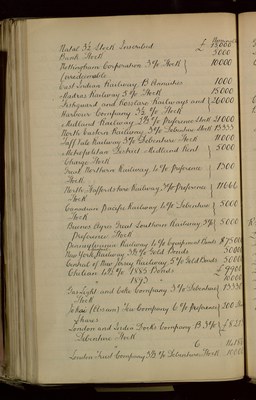 Natal 3½ Stock Inscribed £ 15000
Bank Stock 5000
Nottingham Corporation 3% Stock 10000
Irredeemable
East Indian Railway B Annuities 1000
Madras Railway 5% Stock 15000
Fishguard and Rosslare Railways and 26000
Harbours Company 3½% Stock
Midland Railway 2½% Preference Stock 21000
North Eastern Railway 3% Debenture Stock 13333
Taff Vale Railway 3% Debenture Stock 11000
Metropolitan District Midland Rent 5000
Charge Stock
Great Northern Railway 4% Preference 1300
Stock
North Staffordshire Railway 3% Preference
Stock
Canadian Pacific Railway 4% Debenture 5000
Stock
Buenos Ayres Great Southern Railway 5% 5000
Preference Stock
Pennsylvania Railway 4% Equipment Bonds
New York Railway 3½% Gold Bonds 5000
Central of New Jersey Railway 5% Gold Bonds 5000
Chilian 4½% 1885 Bonds
" 1893 " 10000
Gas Light and Coke Company 3% Debenture
Stock
Company 6% preference
Shares
London and India Docks Company B 3%
Debenture Stock
London Trust Company 3½% Debenture Stock